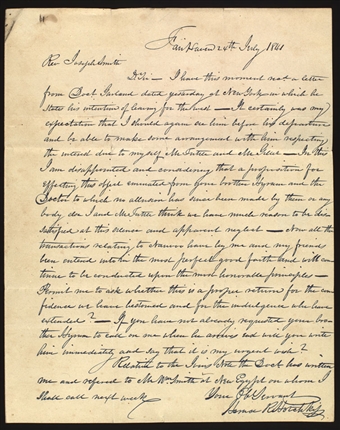 Fair Haven 24th July 1841
Rev Joseph Smith
Dr Sir — I have this moment rec'd a letter
from Doct Garland dated yesterday at New York in which he
states his intention of leaving for the West — It certainly was my
expectation that I should again see him before his departure
and be able to make some arrangement with him respecting
the interest due to myself Mr Tuttle and Mr Gillet — In this
I am disappointed and considering that a proposition for
effecting this object emanated from your brother Hyrum and the
Doctor to which no allusion has since been made by them or any
body else I and Mr Tuttle think we have much reason to be dis
satisfied at this silence and apparent neglect — Now all the
transactions relating to Nauvoo have by me and my friends
been entered into in the most perfect good faith and will con
tinue to be conducted upon the most honorable principles —
Permit me to ask whether this is a proper return for the con
fidence we have bestowed and for the indulgence we have
extended? — If you have not already requested your bro
ther Hyrum to call on me when he arrives east will you write
him immediately and say that it is my urgent wish?
Relative to the Ivins Note the Doct has written
me and refered to Mr Wm Smith at New Egypt on whom I
shall call next week
Your Ob Servant
Horace R Hotchkiss